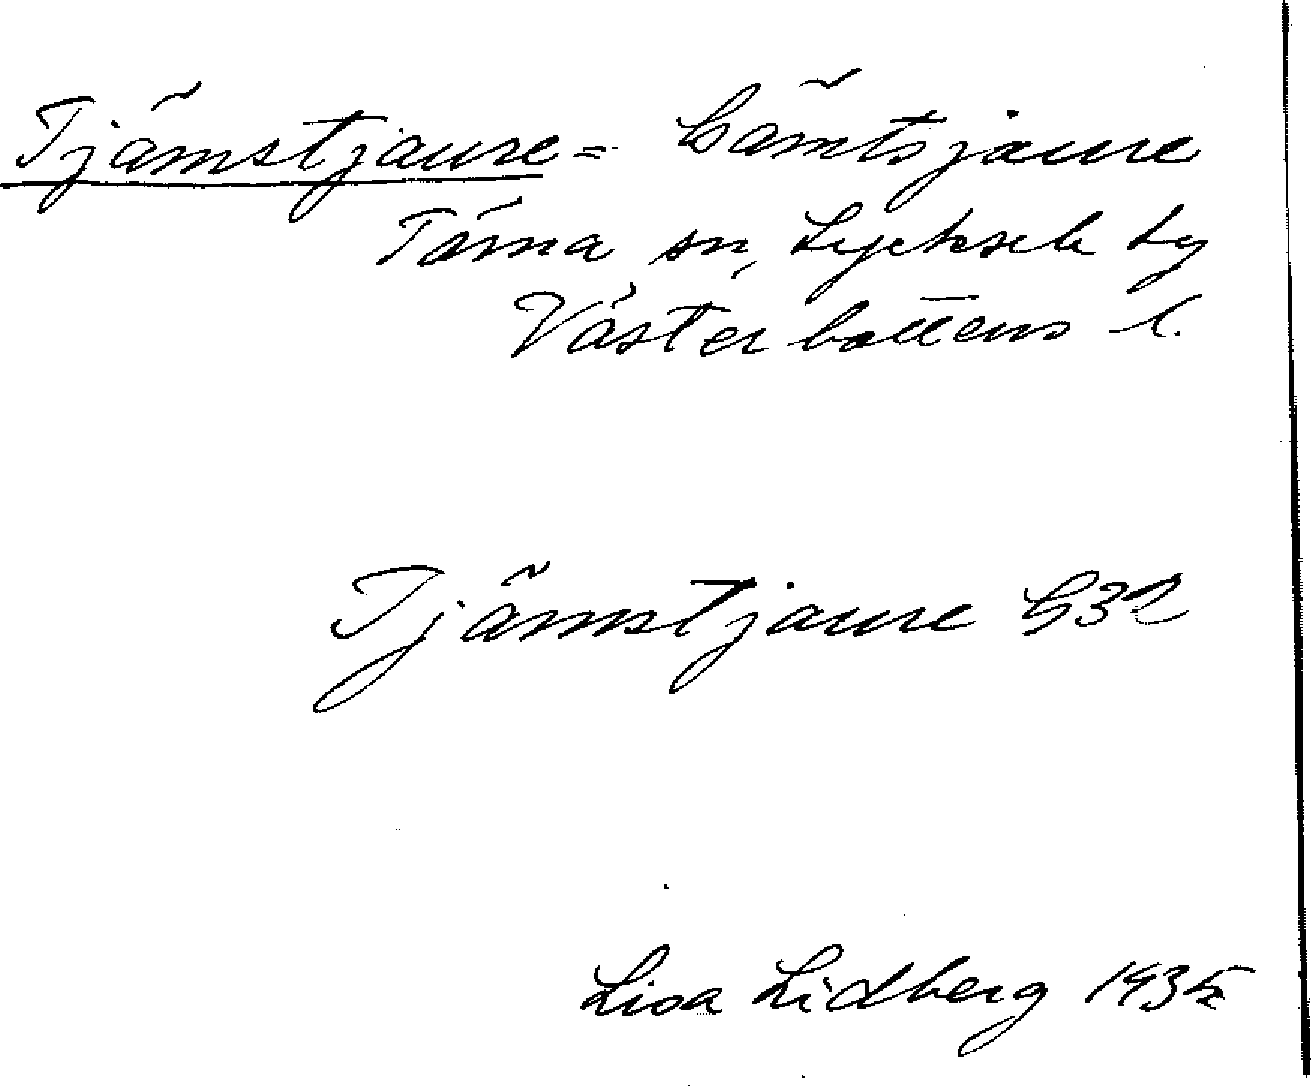 Tjämstjaure = Gämtsjaure
Tärna sn, Lycksele ly
Västerbottens l.
Tjämstjaure G32
Lisa Lidberg